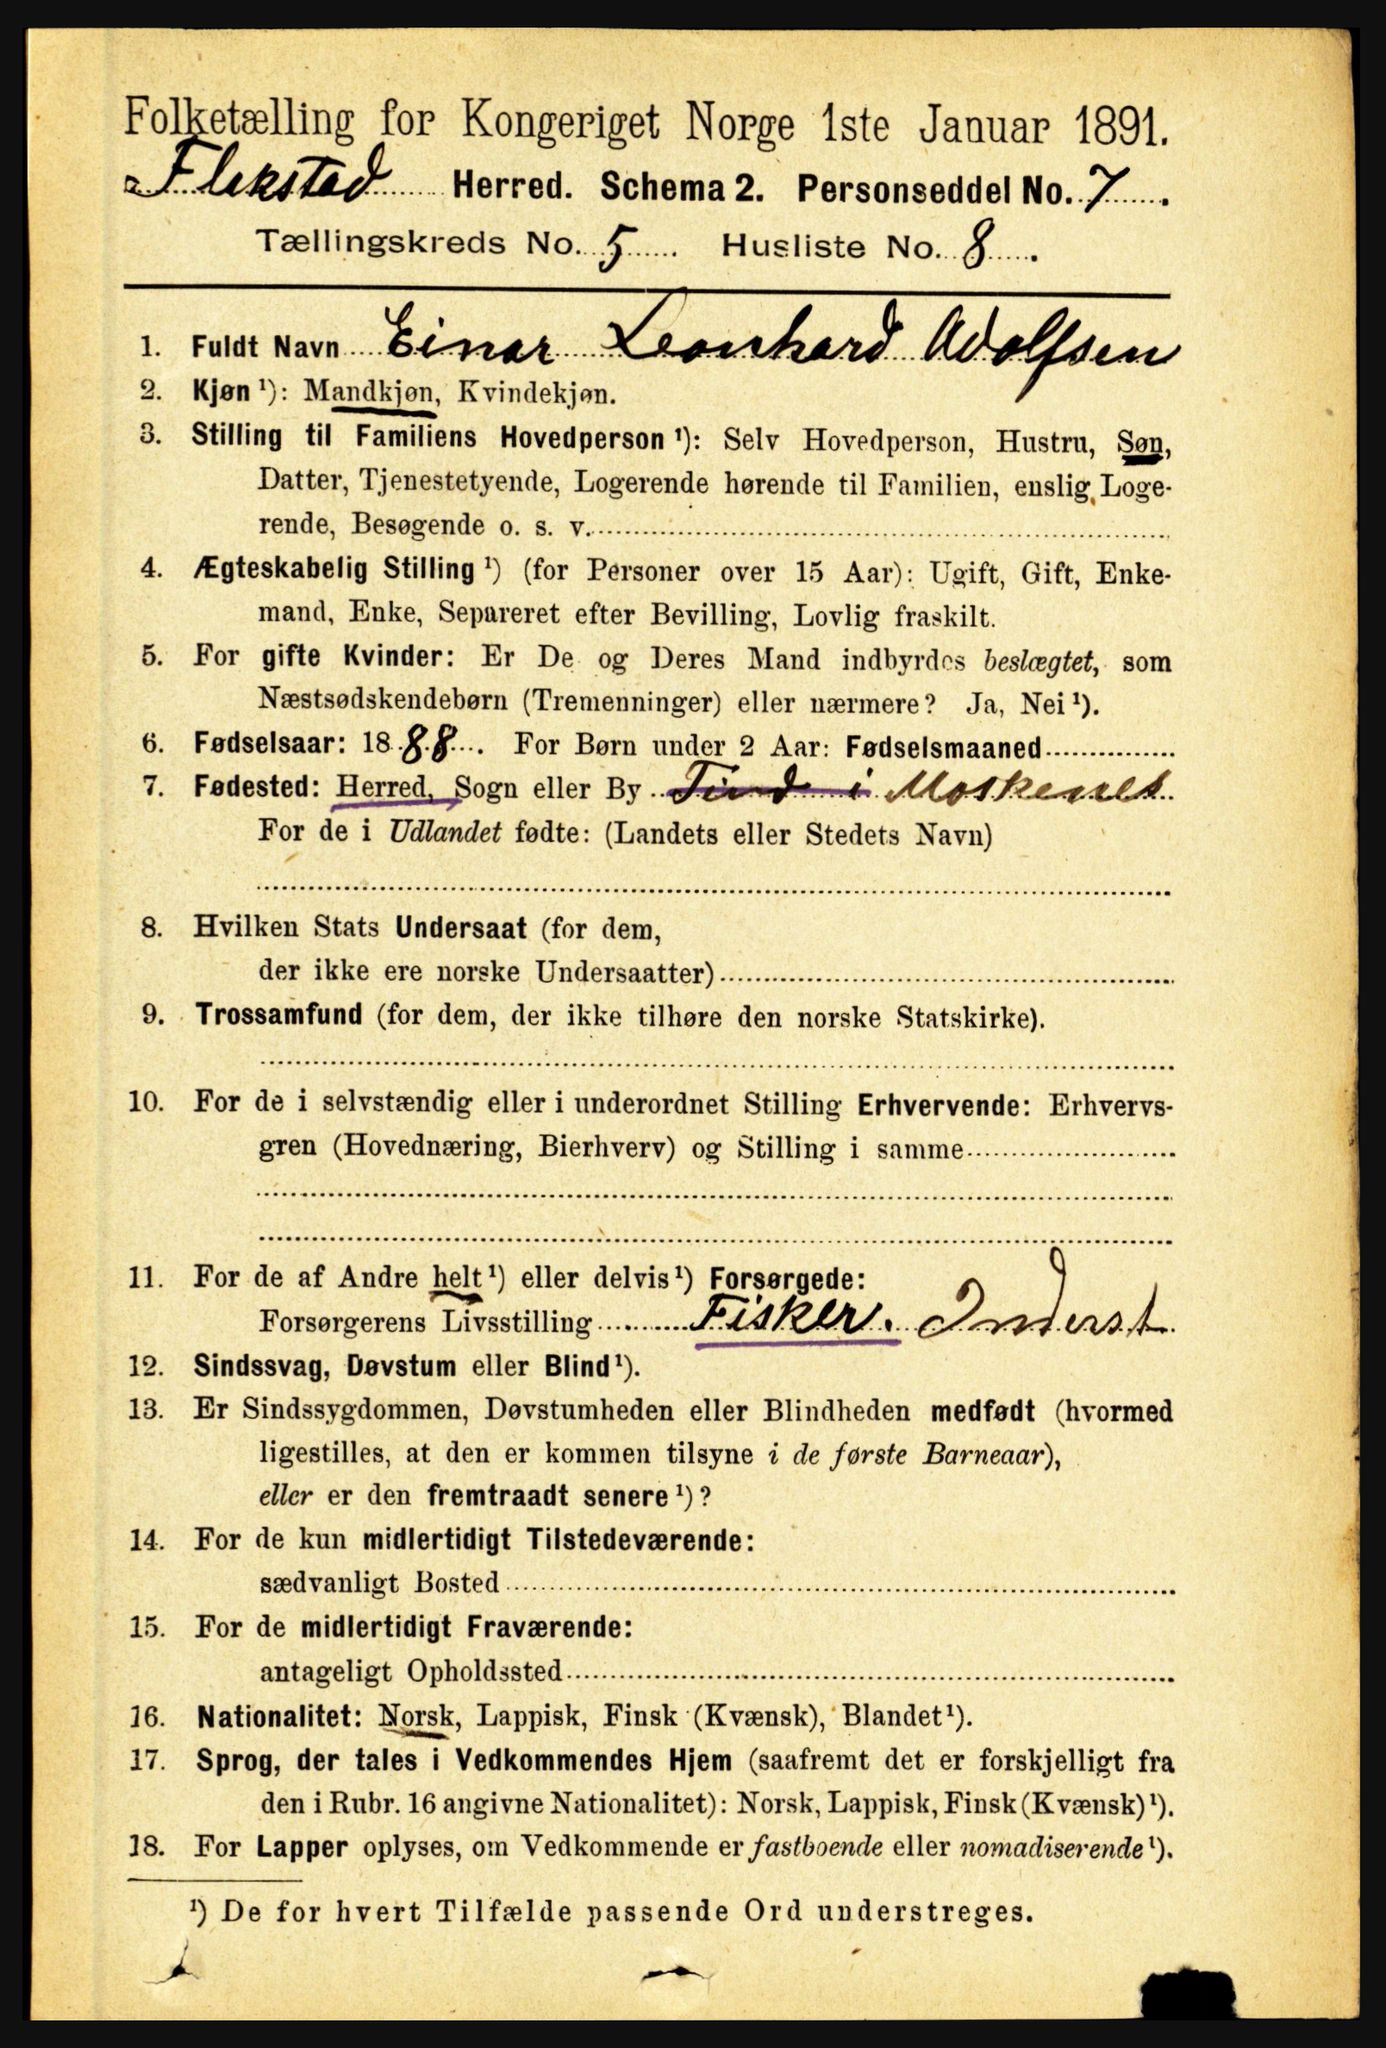 Folketælling for Kongeriget Norge 1ste Januar 1891.
Flakstad Herred. Schema 2. Personseddel No. 7
Tællingskreds No. 5 Husliste No. 8
1. Fuldt Navn Einar Leonhard Adolfsen
2. Kjøn ¹): Mandkjøn, Kvindekjøn.
3. Stilling til Familiens Hovedperson ¹): Selv Hovedperson, Hustru, Søn,
Datter, Tjenestetyende, Logerende hørende til Familien, enslig Loge-
rende, Besøgende o. s. v.
4. Ægteskabelig Stilling ¹) (for Personer over 15 Aar): Ugift, Gift, Enke-
mand, Enke, Separeret efter Bevilling, Lovlig fraskilt.
5. For gifte Kvinder: Er De og Deres Mand indbyrdes beslægtet, som
Næstsødskendebørn (Tremenninger) eller nærmere? Ja, Nei ¹).
6. Fødselsaar: 1888. For Børn under 2 Aar: Fødselsmaaned
7. Fødested: Herred, Sogn eller By Tind i Moskenes
For de i Udlandet fødte: (Landets eller Stedets Navn)
8. Hvilken Stats Undersaat (for dem,
der ikke ere norske Undersaatter)
9. Trossamfund (for dem, der ikke tilhøre den norske Statskirke).
10. For de i selvstændig eller i underordnet Stilling Erhvervende: Erhvervs-
gren (Hovednæring, Bierhverv) og Stilling i samme
11. For de af Andre helt ¹) eller delvis ¹) Forsørgede:
Forsørgerens Livsstilling Fisker. Inderst
12. Sindssvag, Døvstum eller Blind ¹).
13. Er Sindssygdommen, Døvstumheden eller Blindheden medfødt (hvormed
ligestilles, at den er kommen tilsyne i de første Barneaar),
eller er den fremtraadt senere ¹)?
14. For de kun midlertidigt Tilstedeværende:
sædvanligt Bosted
15. For de midlertidigt Fraværende:
antageligt Opholdssted
16. Nationalitet: Norsk, Lappisk, Finsk (Kvænsk), Blandet ¹).
17. Sprog, der tales i Vedkommendes Hjem (saafremt det er forskjelligt fra
den i Rubr. 16 angivne Nationalitet): Norsk, Lappisk, Finsk (Kvænsk) ¹).
18. For Lapper oplyses, om Vedkommende er fastboende eller nomadiserende ¹).
¹) De for hvert Tilfælde passende Ord understreges.